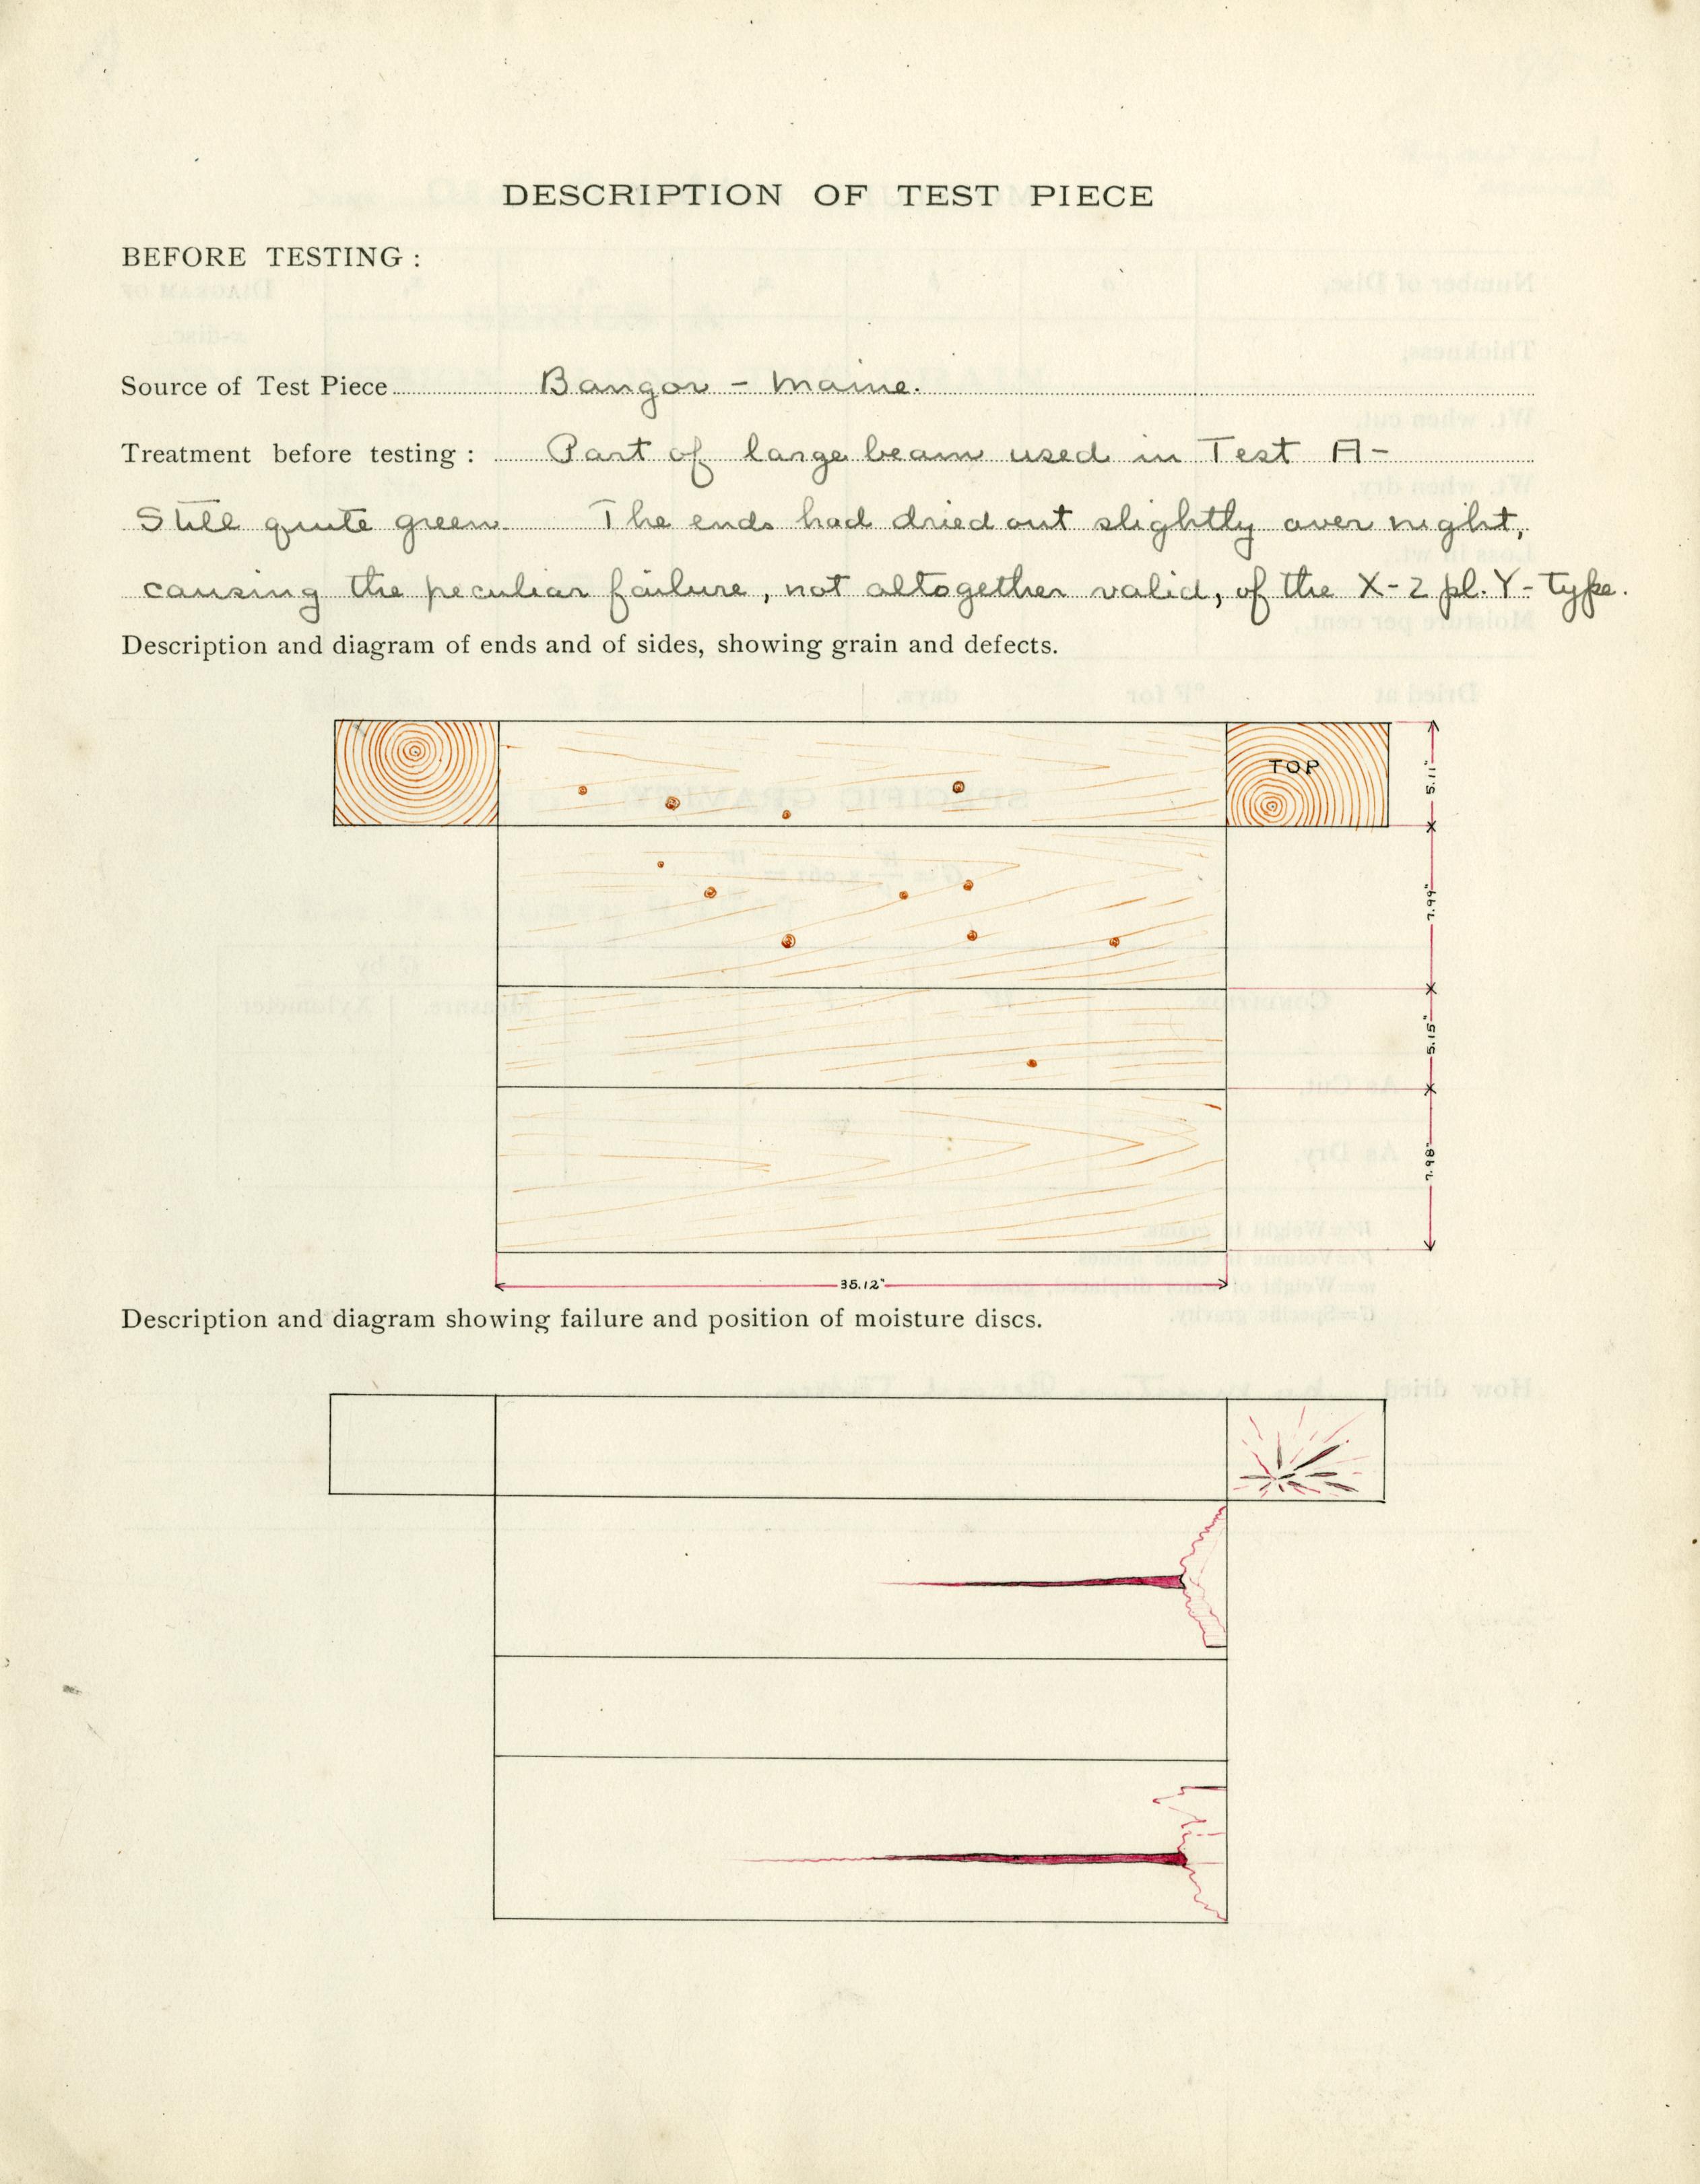 DESCRIPTION OF TEST PIECE
BEFORE TESTING :
Source of Test Piece Bangor - Maine.
Treatment before testing : Part of large beam used in Test A-
Still quite green. The ends had dried out slightly over night,
causing the peculiar failure, not altogether valid, of the X-2 pl. Y-type.
Description and diagram of ends and of sides, showing grain and defects.
TOP
5.11"
7.99"
5.15"
7.98"
35.12"
Description and diagram showing failure and position of moisture discs.